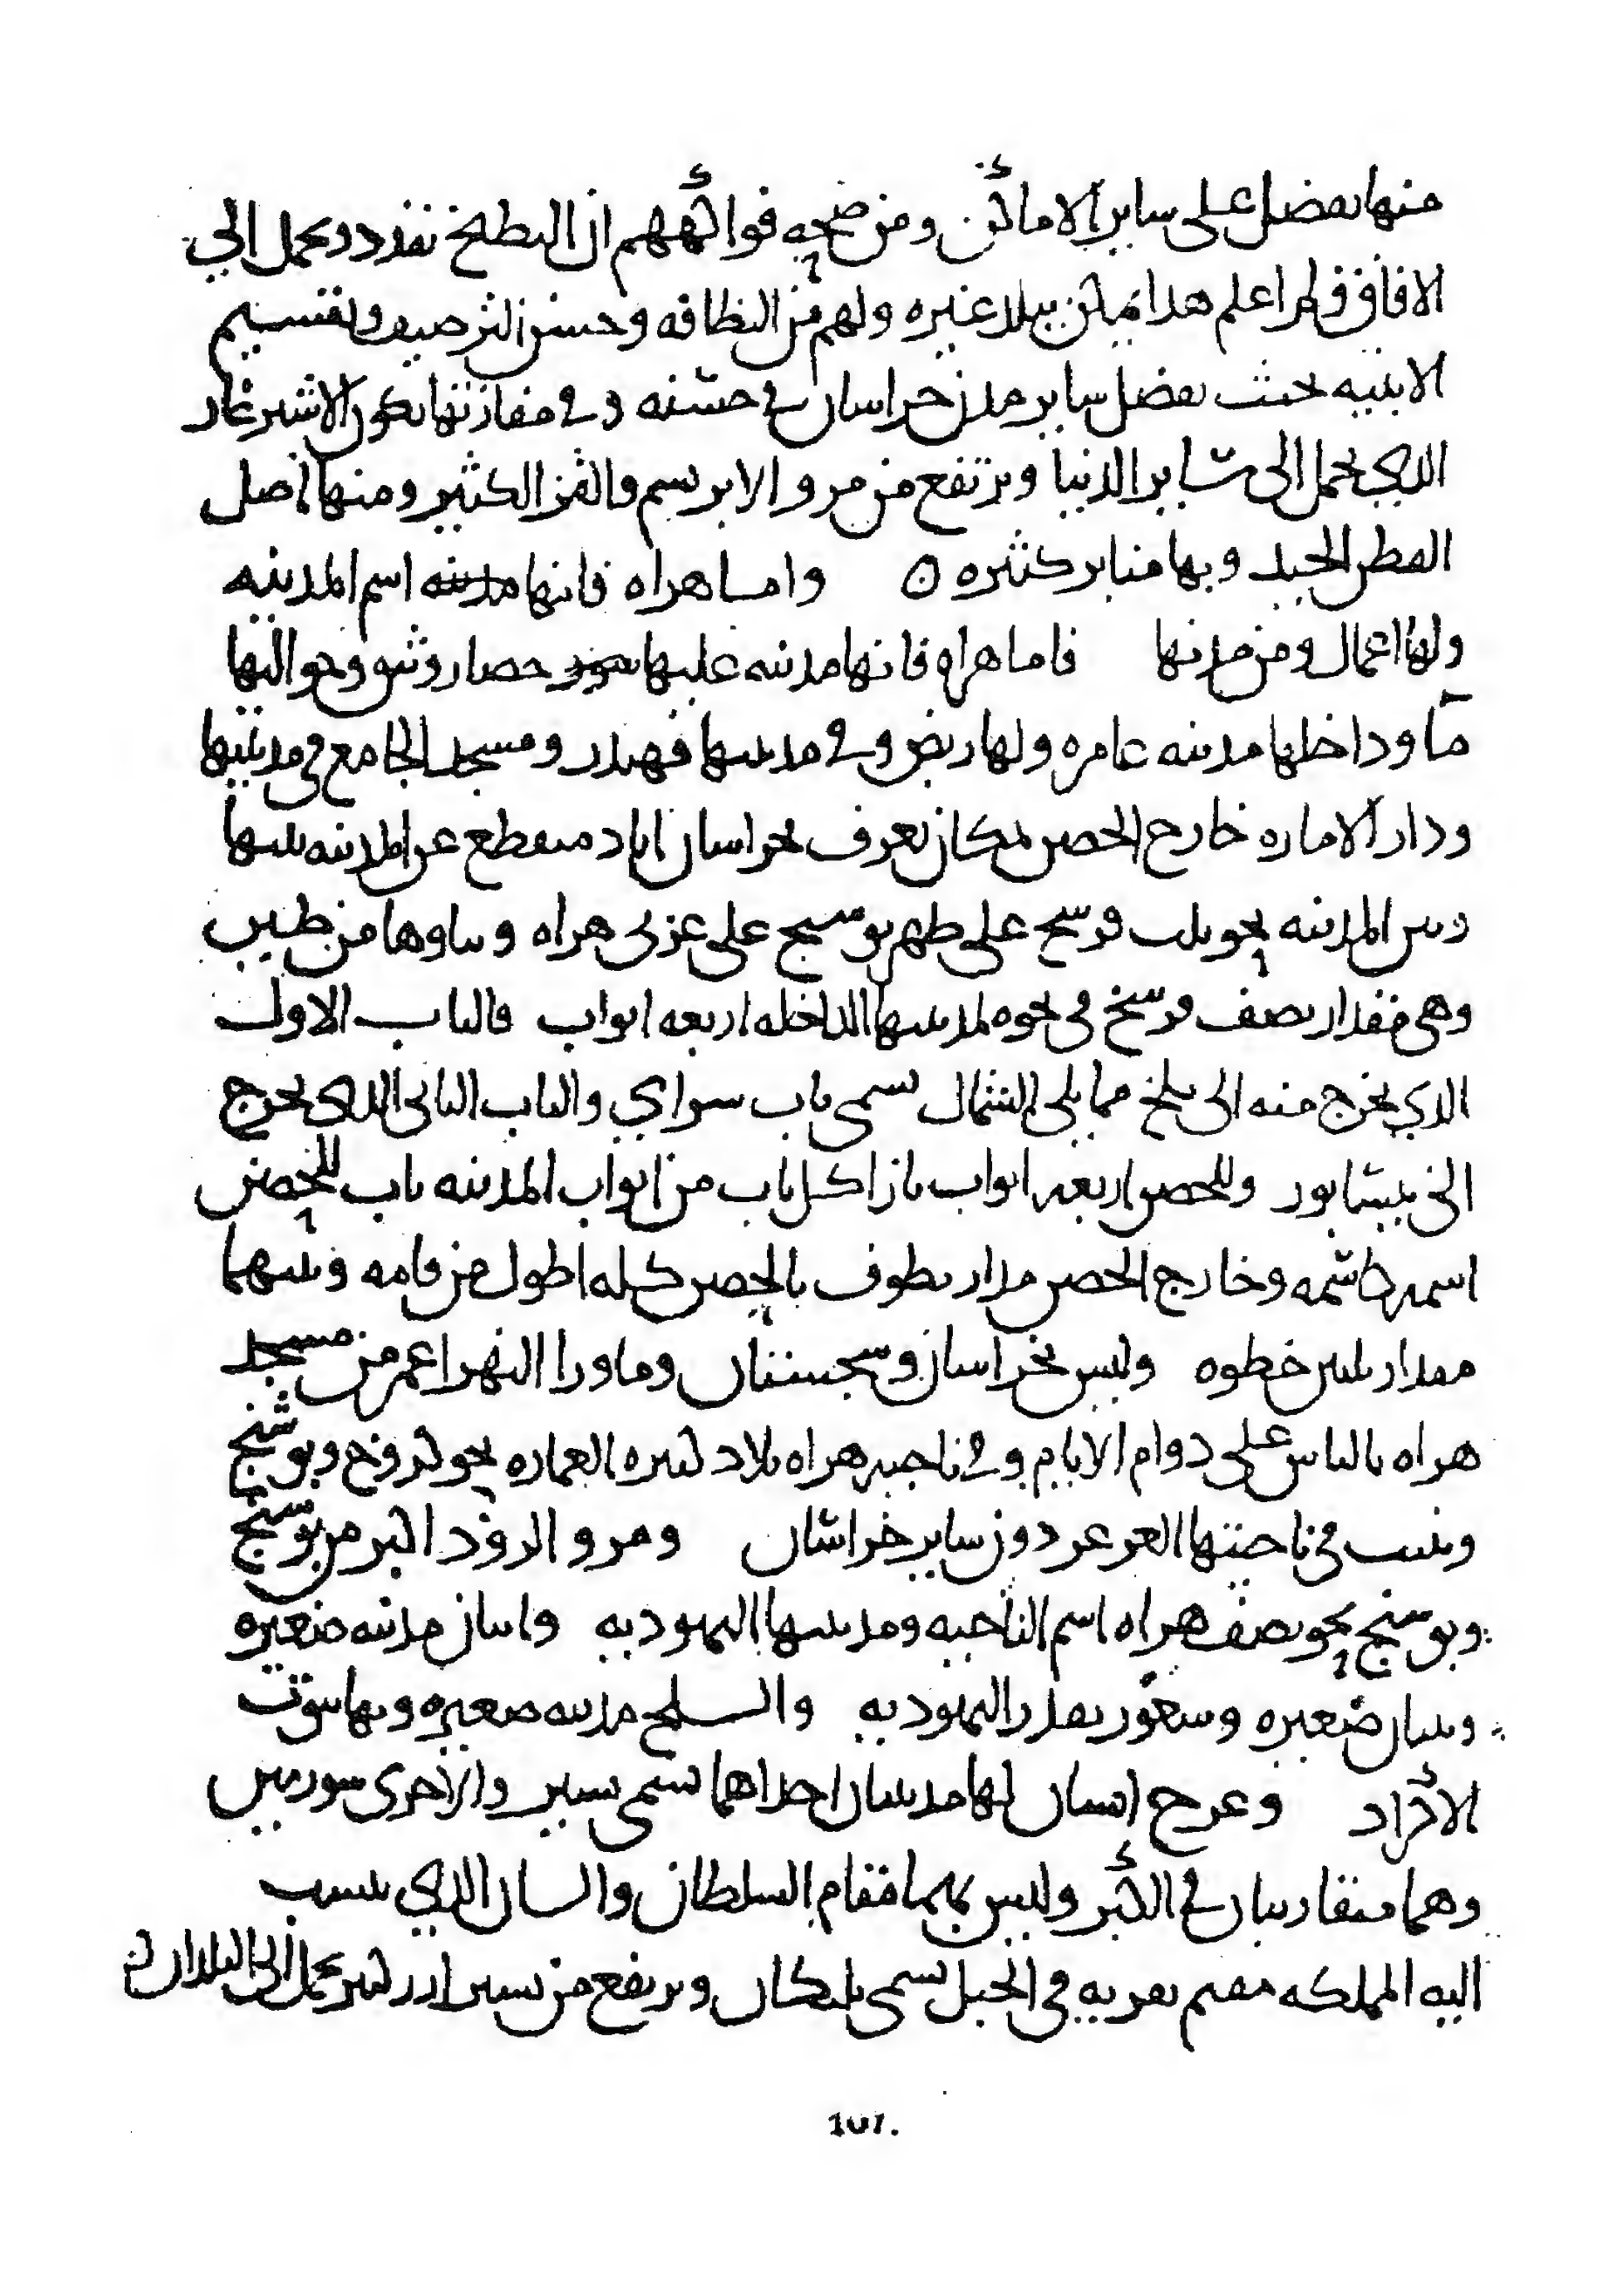 منها يفضل على ساير الاماكن ومن صحه فواكههم ان البطيخ يقدد ويحمل الي
الافاق ولم اعلم هدا يمكن ببلد غيره ولهم من النظافه وحسن الترصيف وتقسيم
الابنيه بحيث يفضل ساير مدن خراسان في حسنه وفي مفازتها يكون الاشترغاز
الدي يحمل الى ساير الدنيا ويرتفع من مرو الابريسم والقز الكثير ومنها اصل
القطن الجيد وبها منابر كثيره ه واما هراه فانها مدينه اسم المدينه
ولها اعمال ومن مدنها فاما هراه فانها مدينه عليها سور حصار وثيق وحواليها
ماء وداخلها مدينه عامره ولها ربض وفي مدينتها قهندز ومسجد الجامع في مدينتها
ودار الاماره خارج الحصن بمكان يعرف بخراسان اباد منقطع عن المدينه بينها
وبين المدينه نحو ثلث فرسخ على طهر بوسنج على غربي هراه وبناوها من طين
وهي مقدار نصف فرسخ في نحوه لمدينتها الداخله اربعه ابواب فالباب الاول
الدي يخرج منه الى بلخ مما يلي الشمال يسمى باب سراي والباب الثاني الدي يخرج
الى نيسابور وللحصن اربعه ابواب بازا كل باب من ابواب المدينه باب للحصن
اسمه كاسمه وخارج الحصن جدار يطوف بالحصن كله اطول من قامه وبينهما
مقدار ثلثين خطوه وليس بخراسان وسجستان وماورا النهر اعمر من مسجد
هراه بالناس على دوام الايام وفي ناحيه هراه بلاد كثيره العماره نحو كروخ وبوشنج
وينبت في ناحيتها العرعر دون ساير خراسان ومرو الرود اكبر من بوسنج
وبوسنج نحو نصف هراه اسم الناحيه ومدينتها اليهوديه وانبار مدينه صغيره
صغيره بقدر اليهوديه مدينه صغيره وبها بيوت
الاكراد لها مدينتان احداهما تسمى نسير والاخرى سورمين
وهما متقاربتان في الكبر وليس بهما مقام السلطان والسار الدي ينسب
اليه المملكه مقيم بقريه في الجبل تسمى بليكان ويرتفع من نسير ارز كثير يحمل الى البلدان
107.